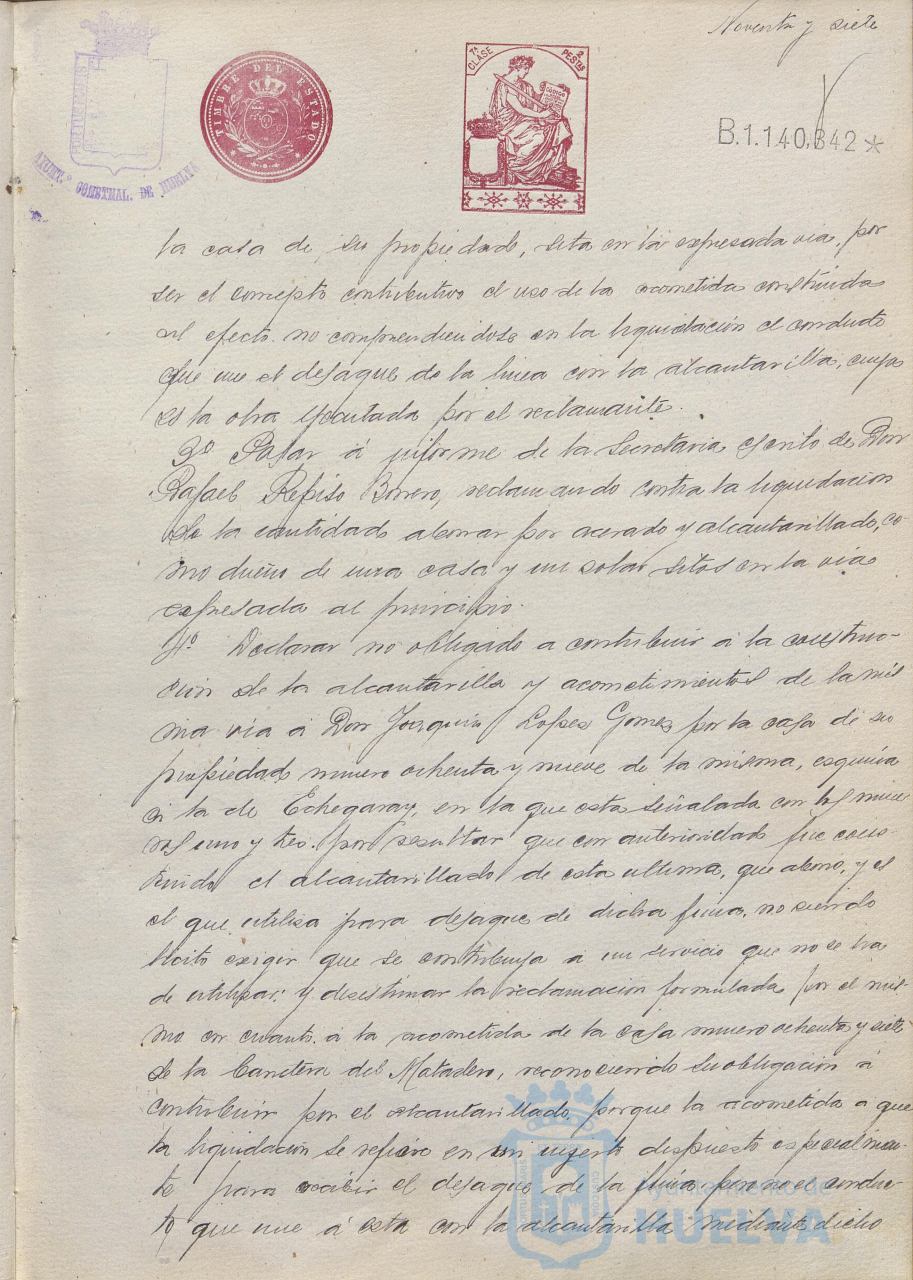 Noventa y siete
AYUNT.º CONSTNAL. DE HUELVA
TIMBRE DEL ESTADO
7ª CLASE
2 PESTAS
CODIGO
B.1.140,342 *
la casa de su propiedad, sita en la expresada via, por
ser el concepto contributivo el uso de la acometida construida
al efecto. no comprendiendose en la liquidación el conducto
que une el desague de la linea con la alcantarilla, cuya
es la obra ejecutada por el reclamante.
3º Pasar á informe de la Secretaria escrito de Don
Rafael Repiso Borrero, reclamando contra la liquidacion
de la cantidad abonar por acerado y alcantarillado, co-
mo dueño de una casa y un solar sitos en la via
expresada al principio.
4º Declarar no obligado a contribuir á la construc-
cion de la alcantarilla y acometimientos de la mis
ma via á Don Joaquin Lopes Gomes por la casa de su
propiedad numero ochenta y nueve de la misma, esquina
á la de Echegaray, en la que esta señalada con los nume-
ros uno y tres. por resultar que con anterioridad fue cons-
truido el alcantarillado de esta ultima, que abono, y es
el que utilisa para desague de dicha finca, no siendo
licito exigir que se contribuya a un servicio que no se ha
de utilizar; y desestimar la reclamacion formulada por el mis-
mo en cuanto á la acometida de la casa numero ochenta y siete
de la Carretera del Matadero, reconociendo su obligacion á
contribuir por el alcantarillado. porque la acometida a que
la liquidación se refiere en un injerto dispuesto especialmen-
te para recibir el desague de la finca pero no el conduc-
to que une á esta con la alcantarilla mediante dicho
Ayuntamiento de
HUELVA